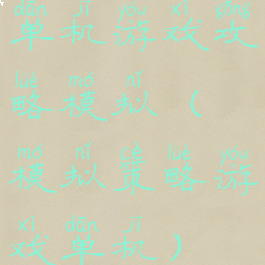 dān jī yóu xì gōng
单机游戏攻
lüè mó nǐ
略模拟（
mó nǐ cè lüè yóu
模拟策略游
xì dān jī
戏单机）